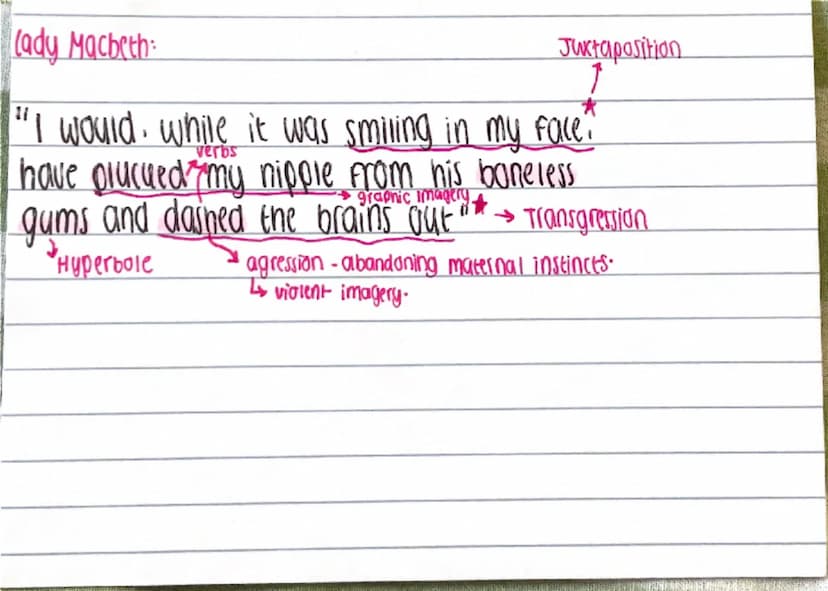 Lady Macbeth:
Juxtaposition
"I would, while it was smiling in my face,
verbs
have plucued my nipple from his boneless
graphic imagery
gums and dashed the brains out" Transgression
Hyperbole
agression - abandoning maternal instincts.
violent imagery.